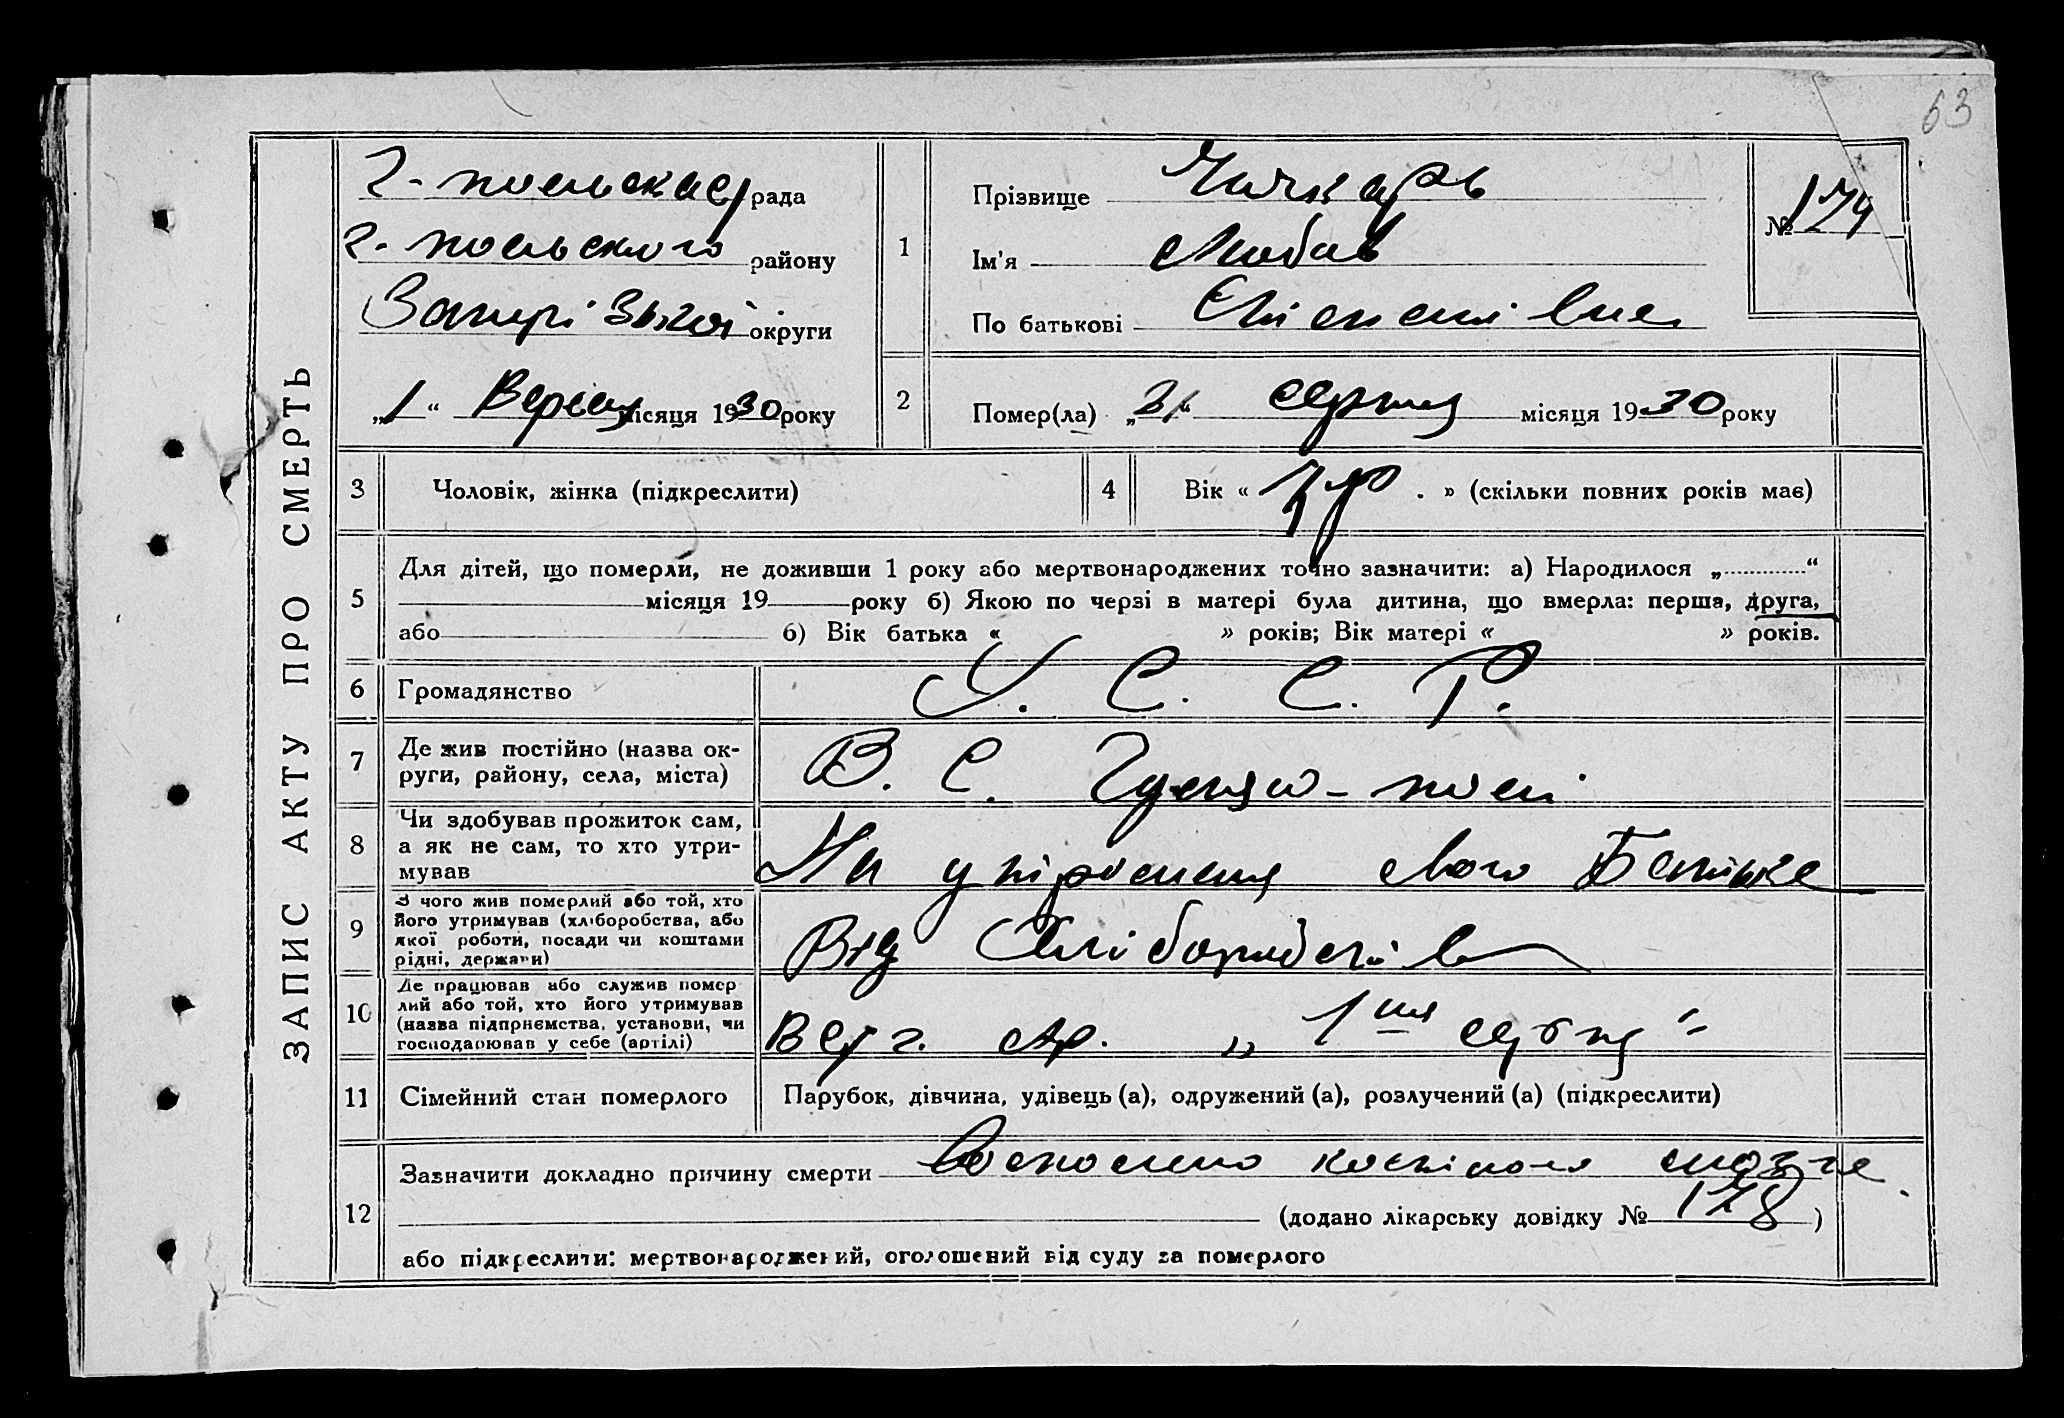 63
ЗАПИС АКТУ ПРО СМЕРТЬ
Г-польска рада
Г-польского району
округи
„1“ Вересня місяця 1930 року
1
Прізвище Чичкарь
Ім'я Любов
По батькові
№ 174
2
Помер(ла) „31“ серпня місяця 1930 року
3
Чоловік, жінка (підкреслити)
4
Вік « » (скільки повних років має)
5
Для дітей, що померли, не доживши 1 року або мертвонароджених точно зазначити: а) Народилося „ “
місяця 19 року б) Якою по черзі в матері була дитина, що вмерла: перша, друга,
або б) Вік батька « » років; Вік матері « » років.
6
Громадянство
У. С. С. Р.
7
Де жив постійно (назва ок-
руги, району, села, міста)
В. С. Гуляй-поли
8
Чи здобував прожиток сам,
а як не сам, то хто утри-
мував
На утриманя свого Батька
9
З чого жив померлий або той, хто
його утримував (хліборобства, або
якої роботи, посади чи коштами
рідні, держави)
Від Хліборобства
10
Де працював або служив помер
лий або той, хто його утримував
(назва підприємства, установи, чи
господарював у себе (артілі)
„ 1ша серпня “
11
Сімейний стан померлого
Парубок, дівчина, удівець (а), одружений (а), розлучений (а) (підкреслити)
12
Зазначити докладно причину смерти
(додано лікарську довідку № 178)
або підкреслити: мертвонароджений, оголошений від суду за померлого